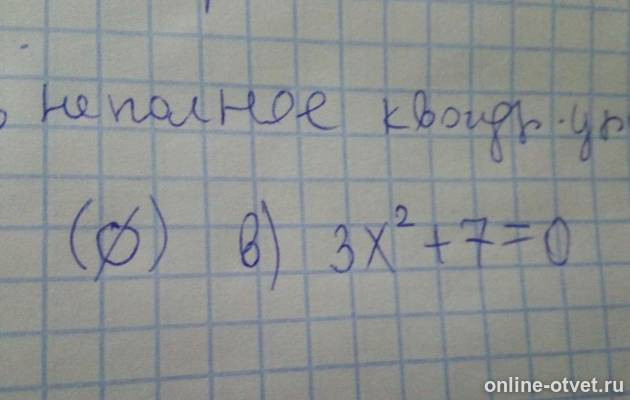 неполное квадр. ур
(∅) в) 3x² + 7 = 0
online-otvet.ru